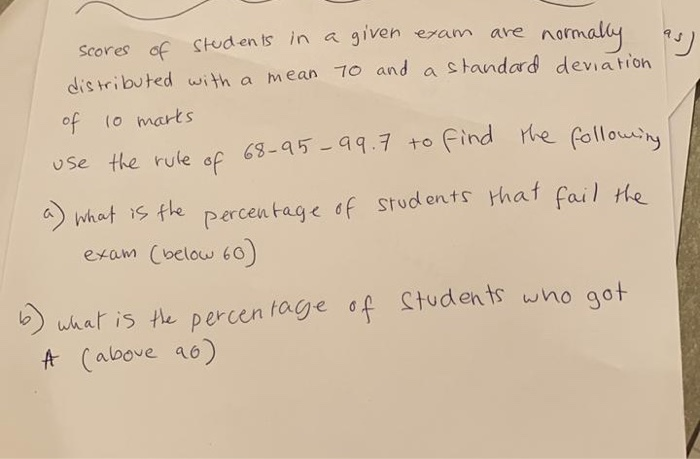 Scores of students in a given exam are normally
distributed with a mean 70 and a standard deviation
of 10 marks
use the rule of 68-95-99.7 to find the following
a) what is the percentage of students that fail the
exam (below 60)
b) what is the percentage of students who got
A (above 90)